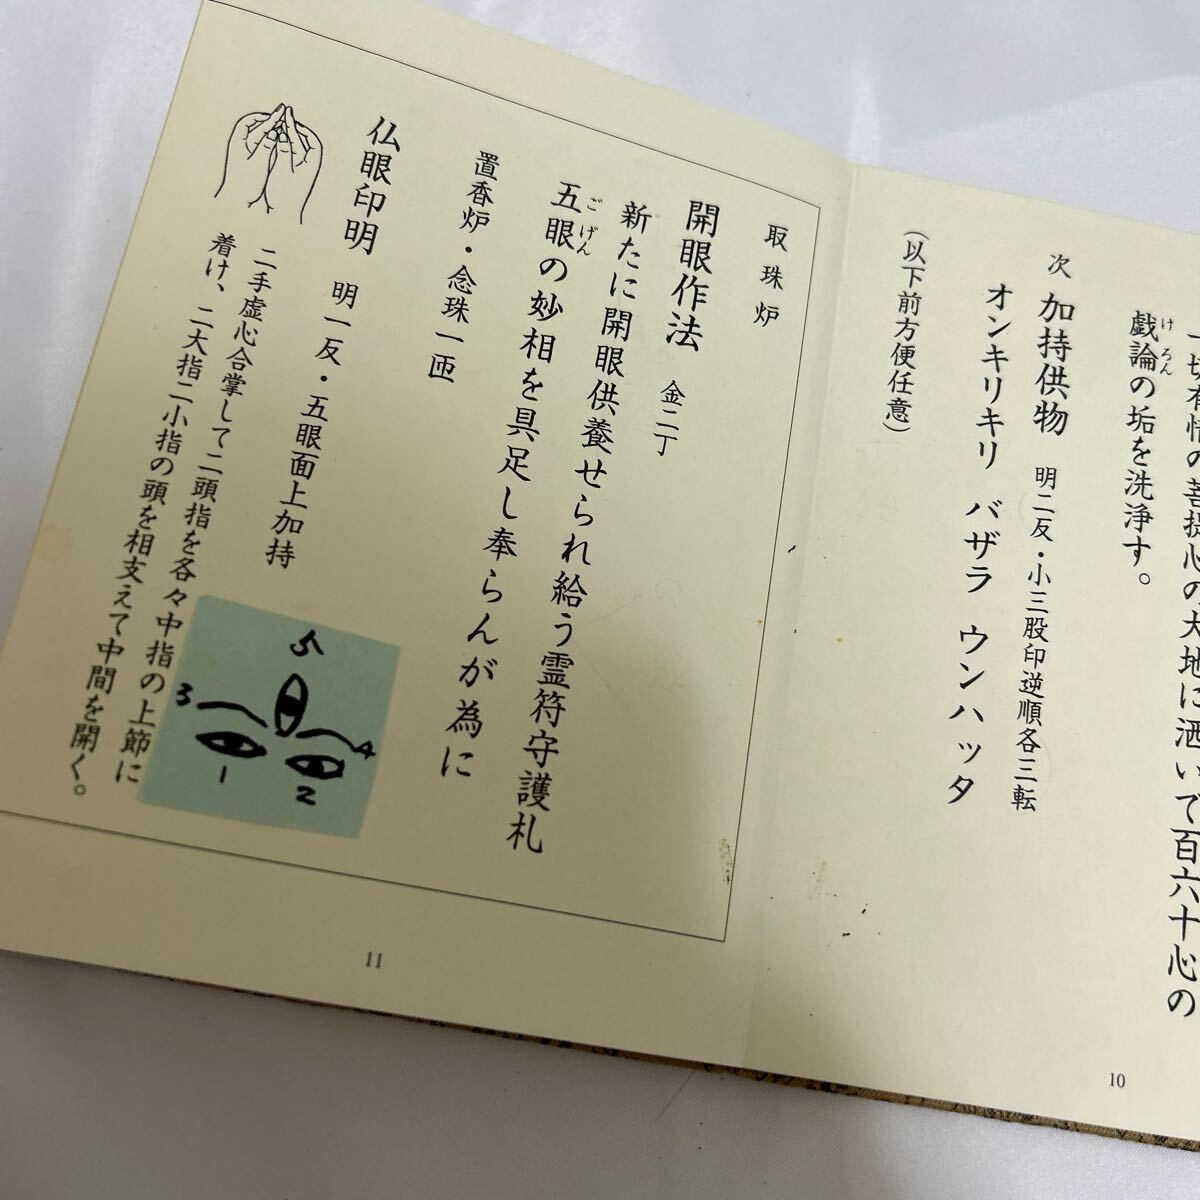 一切有情の菩提心の大地に洒いで百六十心の
戯論の垢を洗浄す。
けろん
次 加持供物 明二反・小三股印逆順各三転
オンキリキリ バザラ ウンハッタ
（以下前方便任意）
10
取珠炉
開眼作法 金二丁
新たに開眼供養せられ給う霊符守護札
五眼の妙相を具足し奉らんが為に
ごげん
置香炉・念珠一匝
仏眼印明 明一反・五眼面上加持
二手虚心合掌して二頭指を各々中指の上節に
着け、二大指二小指の頭を相支えて中間を開く。
5
3
4
1
2
11